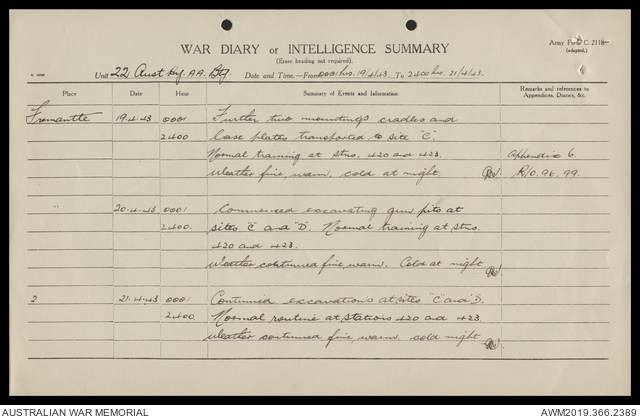 WAR DIARY or INTELLIGENCE SUMMARY
Army Form C. 2118
(adapted.)
(Erase heading not required).
Unit 22 Aust Hy. A.A. Bty. Date and Time.—From 0001 hrs. 19/4/43. To 2400 hrs. 21/4/43.
Place Date Hour Summary of Events and Information Remarks and references to Appendices, Diaries, &c.
Fremantle 19.4.43 0001 Further two mountings cradles and
2400 base plates transported to site "C".
Normal training at Stns. 420 and 423. Appendix 6.
Weather fine, warm, cold at night. R/O. 98. 99.
" 20.4.43 0001 Commenced excavating gun pits at
2400. sites "C" and "D". Normal training at Stns.
420 and 423.
Weather continued fine, warm. Cold at night
2 21.4.43 0001 Continued excavations at sites "C" and "D".
2400. Normal routine at Stations 420 and 423.
Weather continued fine, warm, cold night
AUSTRALIAN WAR MEMORIAL
AWM2019.366.2389